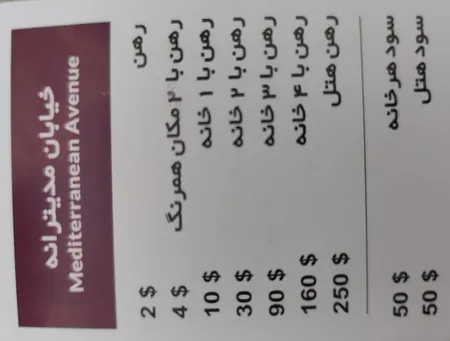 خیابان مدیترانه
Mediterranean Avenue
رهن 2 $
رهن با ۲ مکان همرنگ 4 $
رهن با ۱ خانه 10 $
رهن با ۲ خانه 30 $
رهن با ۳ خانه 90 $
رهن با ۴ خانه 160 $
رهن هتل 250 $
سود هر خانه 50 $
سود هتل 50 $